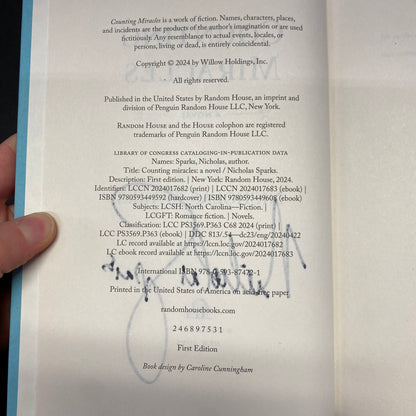 Counting Miracles is a work of fiction. Names, characters, places,
and incidents are the products of the author's imagination or are used
fictitiously. Any resemblance to actual events, locales, or
persons, living or dead, is entirely coincidental.
Copyright © 2024 by Willow Holdings, Inc.
All rights reserved.
Published in the United States by Random House, an imprint and
division of Penguin Random House LLC, New York.
RANDOM HOUSE and the HOUSE colophon are registered
trademarks of Penguin Random House LLC.
LIBRARY OF CONGRESS CATALOGING-IN-PUBLICATION DATA
Names: Sparks, Nicholas, author.
Title: Counting miracles / a novel / Nicholas Sparks.
Description: First edition. | New York: Random House, 2024.
Identifiers: LCCN 2024017682 (print) | LCCN 2024017683 (ebook) |
ISBN 9780593449592 (hardcover) | ISBN 9780593449608 (ebook)
Subjects: LCSH: North Carolina—Fiction. |
LCGFT: Romance fiction. | Novels.
Classification: LCC PS3569.P363 C68 2024 (print) |
LCC PS3569.P363 (ebook) | DDC 813/.54—dc23/eng/20240422
LC record available at https://lccn.loc.gov/2024017682
LC ebook record available at https://lccn.loc.gov/2024017683
International ISBN 978-0-593-87472-1
Printed in the United States of America on acid-free paper
randomhousebooks.com
2 4 6 8 9 7 5 3 1
First Edition
Book design by Caroline Cunningham